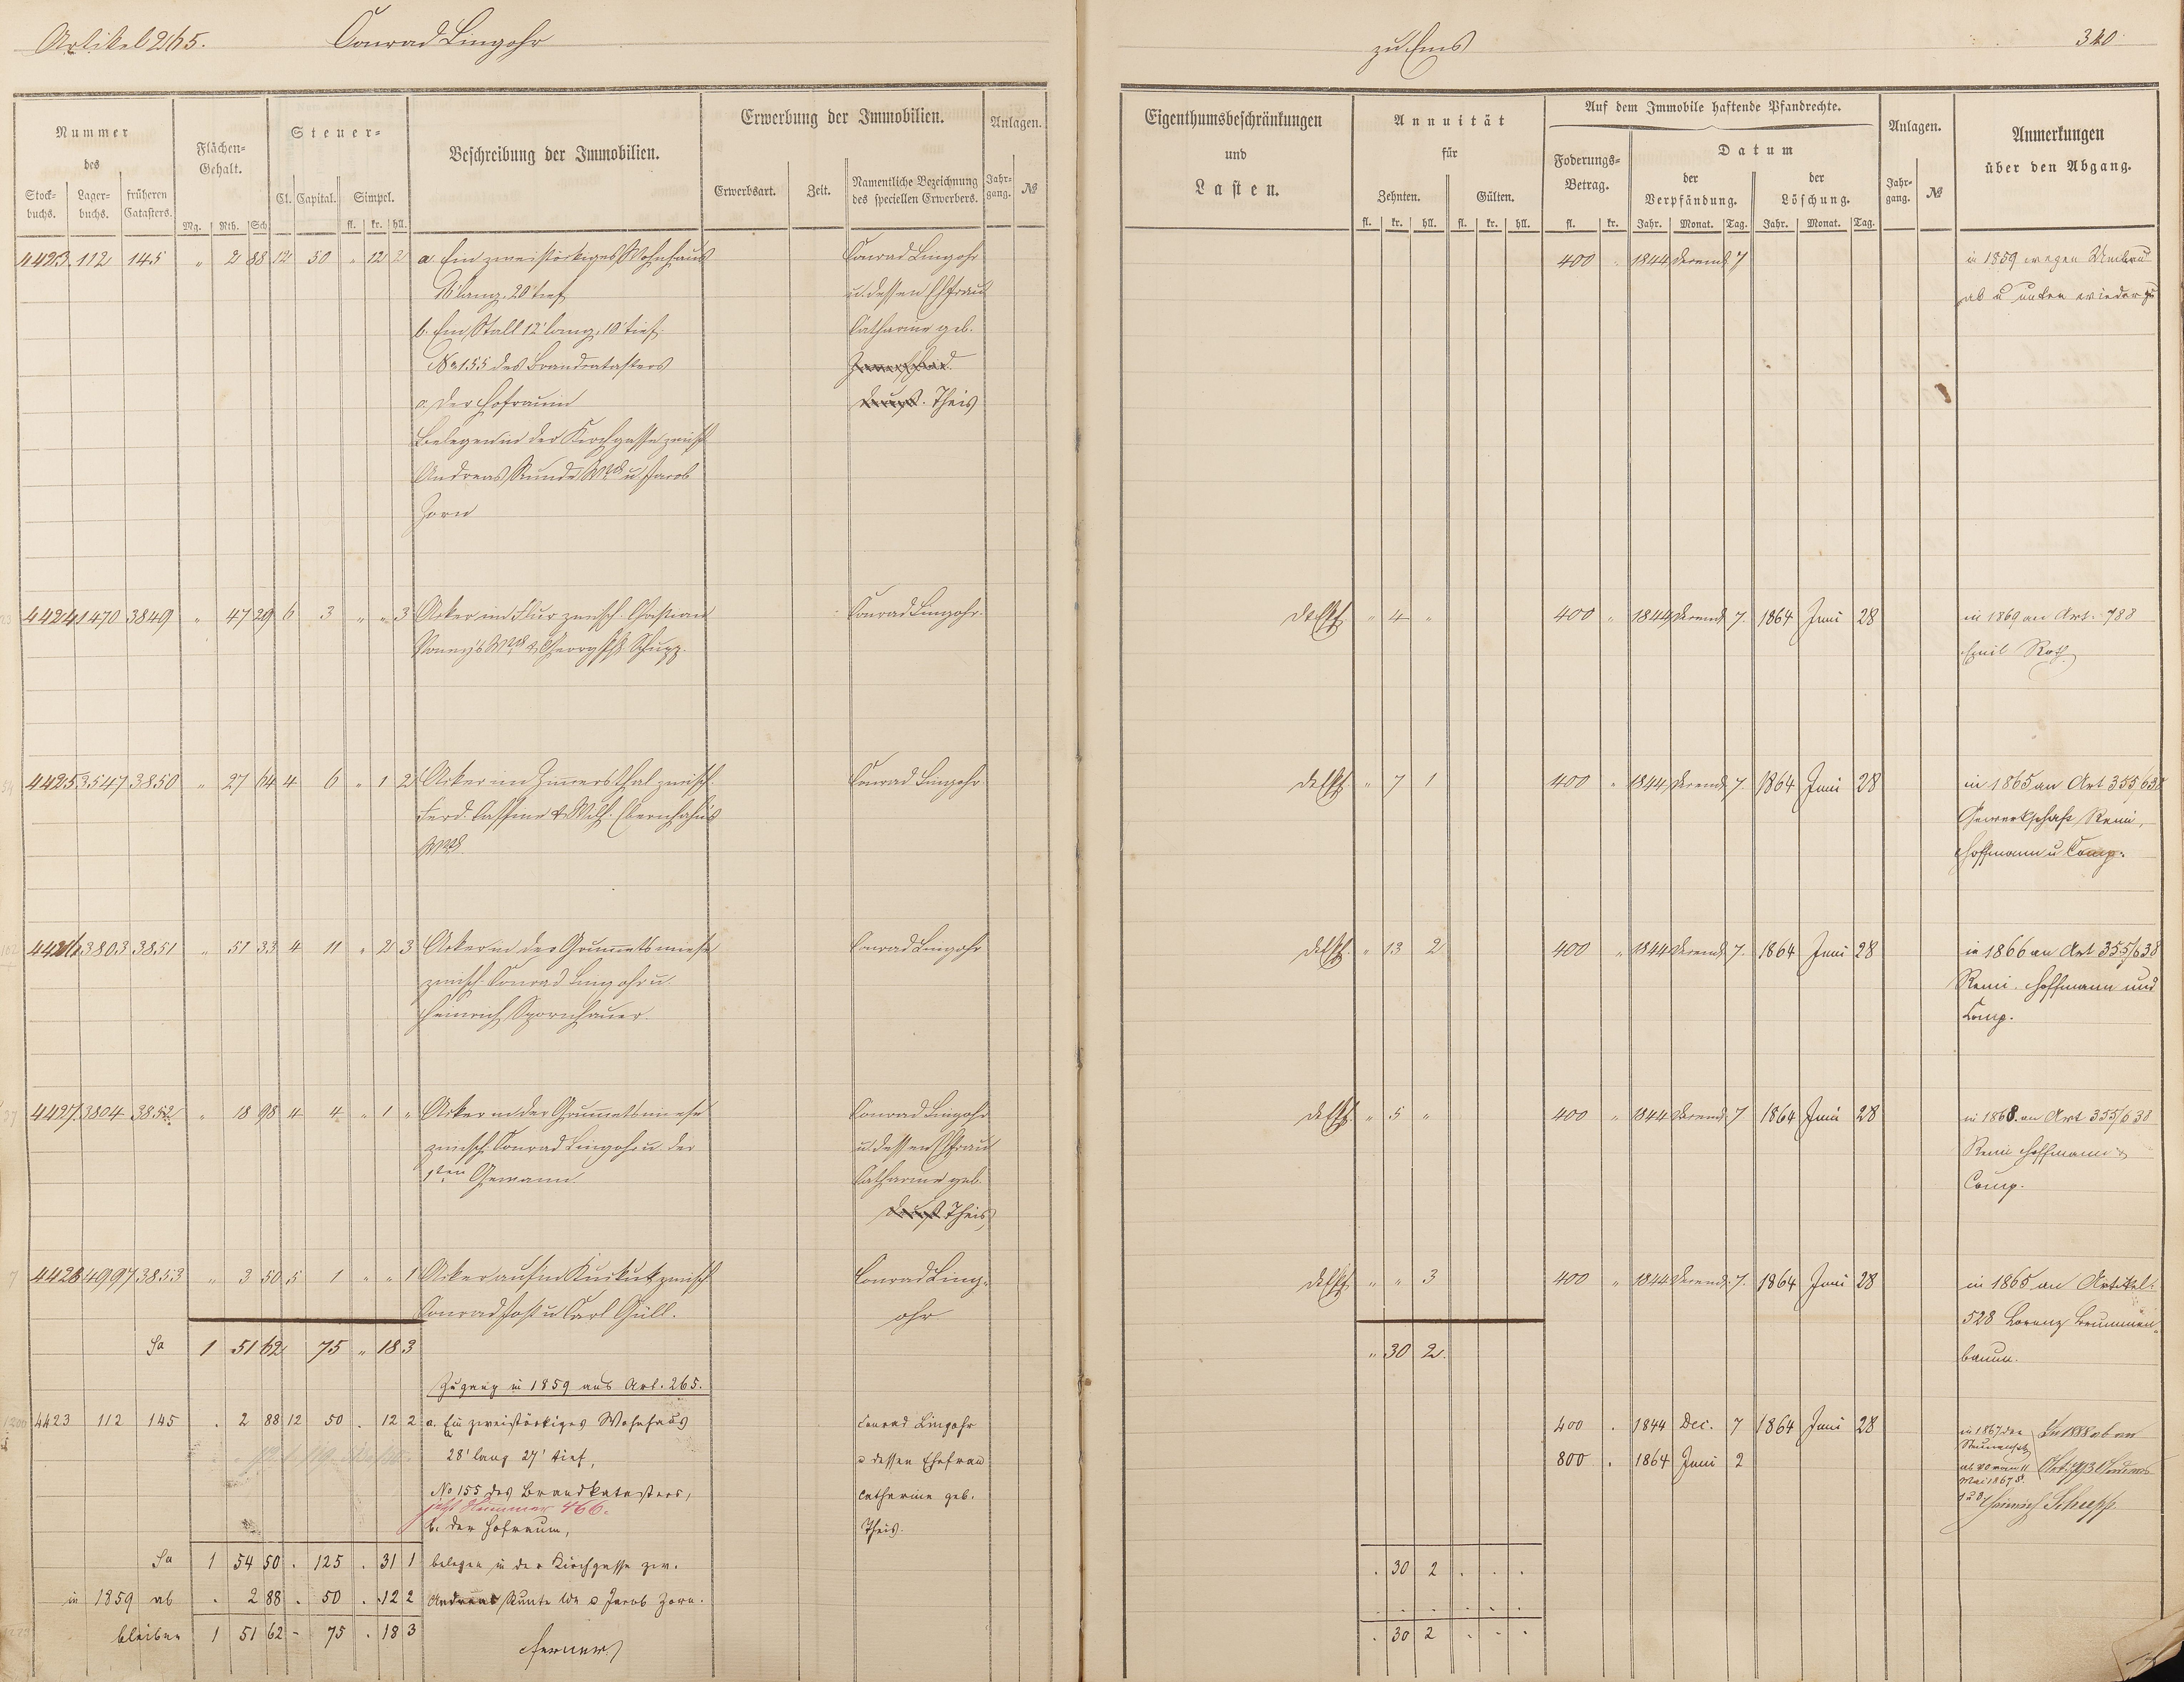 Artikel 265. Conrad Lingohr zu Ems 340
Nummer des
Stockbuchs. Lagerbuchs. früheren Catasters.
Flächen-Gehalt.
Mg. Rth. Sch
Steuer-
Cl. Capital. Simpel.
fl. kr. hll.
Beschreibung der Immobilien.
Erwerbung der Immobilien.
Erwerbsart. Zeit. Namentliche Bezeichnung des speciellen Erwerbers.
Anlagen.
Jahrgang. №
Eigenthumsbeschränkungen und Lasten.
Annuität für
Zehnten. Gülten.
fl. kr. hll. fl. kr. hll.
Auf dem Immobile haftende Pfandrechte.
Foderungs-Betrag.
fl. kr.
Datum
der Verpfändung. der Löschung.
Jahr. Monat. Tag. Jahr. Monat. Tag.
Anlagen.
Jahrgang. №
Anmerkungen über den Abgang.
4423 112 145 " 2 88 12 50 " 12 2 a. Ein zweistöckiges Wohnhaus Conrad Lingohr 400 " 1844 Decemb. 7 in 1859 wegen Umbau
lang, 20' tief u. dessen Ehefrau ab u unten wieder zu
b. Ein Stall 12' lang, 10' tief. Catharine geb.
No 155 des Brandcatasters
c. Der Hofraum Theis
Belegen in der Kirchgasse zwisch
Andreas Kunds Wwe u. Jacob
Zorn
4424 1470 3849 " 47 29 6 3 " " 3 Acker im Flur zwisch. Christian Conrad Lingohr " 4 " 400 " 1844 Decemb. 7. 1864 Juni 28 in 1869 an Art. 788
Wwe & Schupp. Emil Roth
4425 3547 3850 " 27 64 4 6 " 1 2 Acker im Zimersthal zwisch Conrad Lingohr " 7 1 400 " 1844 Decemb. 7. 1864 Juni 28 in 1865 an Art 355/638
Ferd. & Wilh. Gewerkschaft Remi,
Wwe. Hoffmann u Comp.
4426 3803 3851 " 51 33 4 11 " 2 3 Acker in der Grumetswiese Conrad Lingohr " 13 2 400 " 1844 Decemb. 7. 1864 Juni 28 in 1866 an Art 355/638
zwisch Conrad Lingohr u. Remi. Hoffmann und
Heinrich Spornhauer. Comp.
4427 3804 3852 " 18 98 4 4 " 1 " Acker in der Grumetswiese Conrad Lingohr " 5 " 400 " 1844 Decemb. 7 1864 Juni 28 in 1868 an Art 355/638
zwisch. Conrad Lingohr u der u. dessen Ehefrau Remi Hoffmann &
1ten Gewann. Catharine geb. Comp.
Theis
4428 4997 3853 " 3 50 5 1 " " 1 Acker auf'm Kuckuck zwisch Conrad Ling- " " 3 400 " 1844 Decemb. 7. 1864 Juni 28 in 1865 an Artikel
Conrad Jost u Carl Güll. ohr 528 Lorenz Brummen-
Sa 1 51 62 75 " 18 3 " 30 2. baum.
Zugang in 1859 aus Art. 265.
4423 112 145 . 2 88 12 50 . 12 2 a. Ein zweistöckiges Wohnhaus Conrad Lingohr 400 . 1844 Dec. 7 1864 Juni 28 in 1867 In 1888 ab an
28' lang 27' tief, u dessen Ehefrau 800 . 1864 Juni 2
No 155 des Brandkatasters, Catharine geb. Mai 1867
jetzt Nummer 466. Heinrich Schupp
b. der Hofraum, Theis.
Sa 1 54 50 . 125 . 31 1 belegen in der Kirchgasse zw. . 30 2 . . .
in 1859 ab . 2 88 . 50 . 12 2 Andreas Kunts We u Jacob Zorn. . . . . . .
bleiben 1 51 62 - 75 . 18 3 ferner . 30 2 . . .